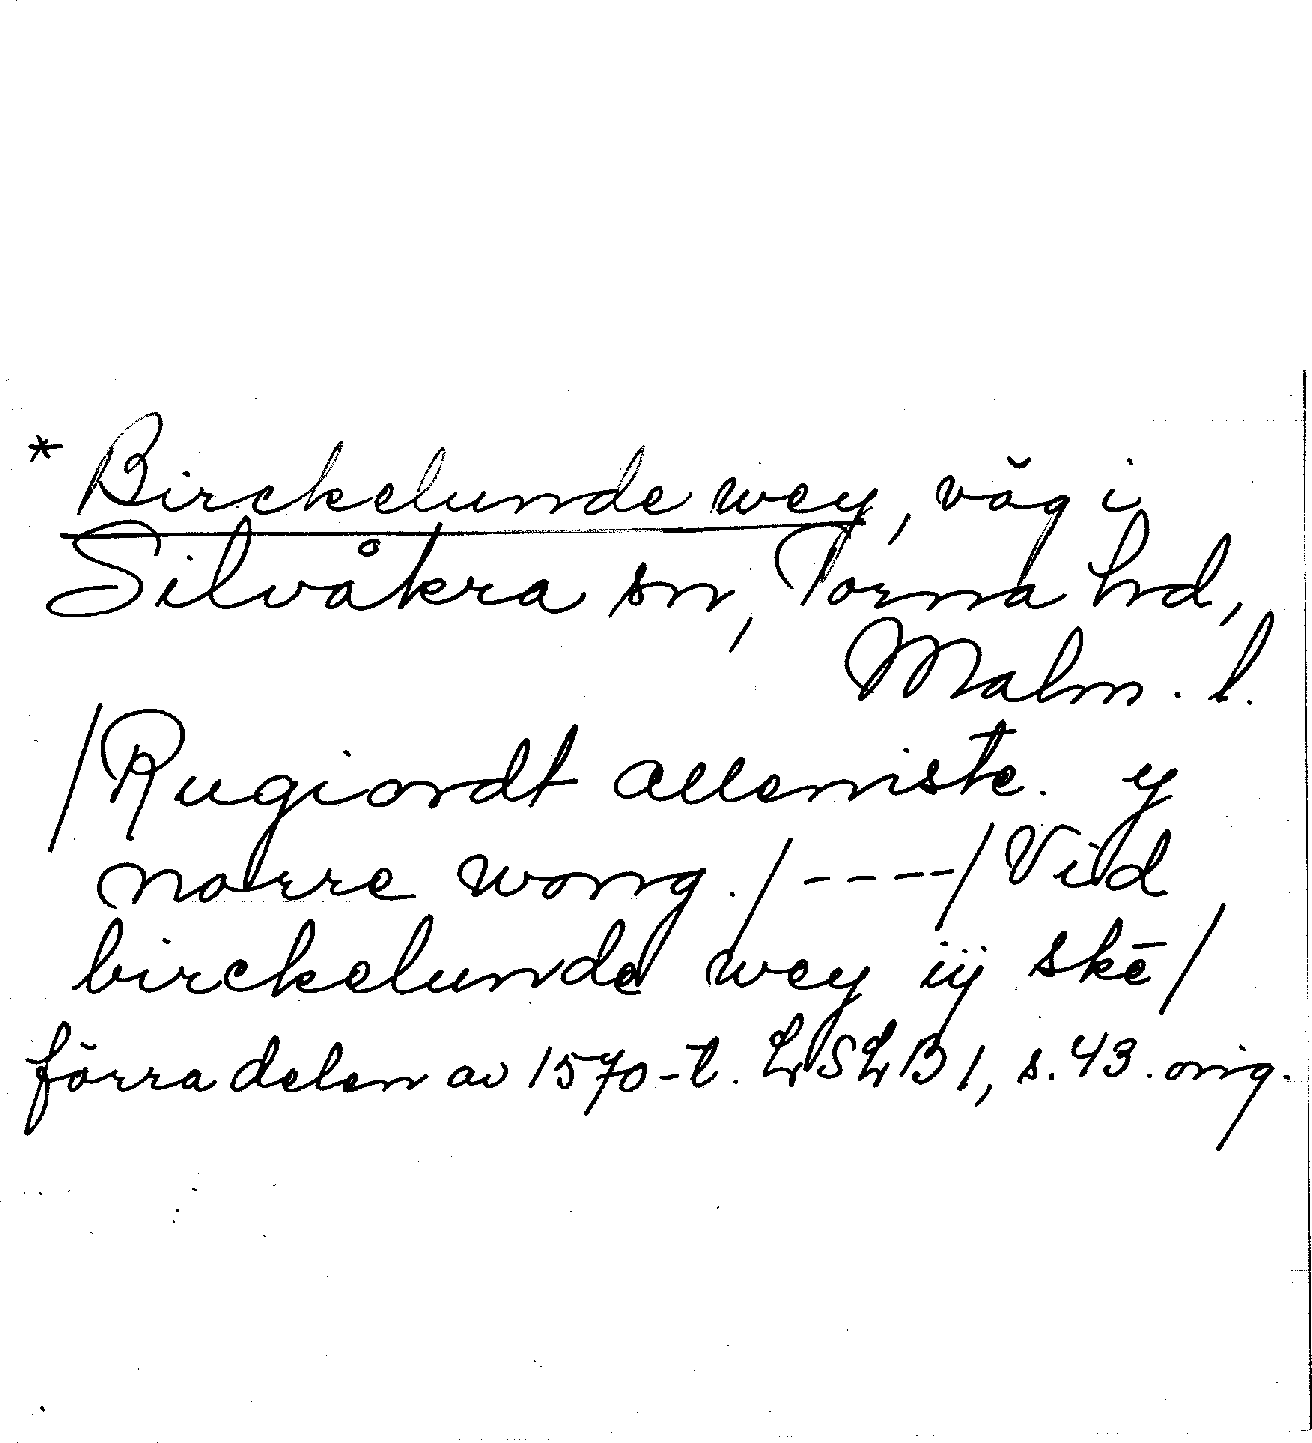 * Birckelunde wey, väg i
Silvåkra sn, Torna hrd,
Malm. l.
/Rugiordt alleniste. y
norre wong. /----/ Vid
birckelunde wey iij skē/
förra delen av 1570-t. LSLB 1, s. 43. orig.